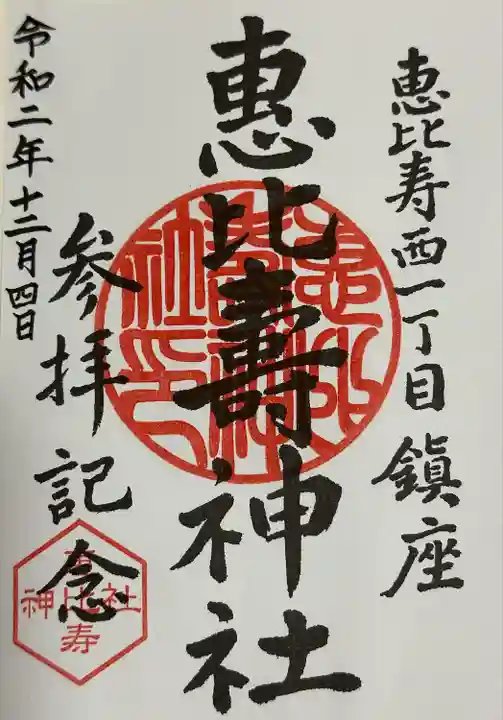 恵比寿西一丁目鎮座
恵比壽神社
参拝記念
令和二年十二月四日
神比社
寿